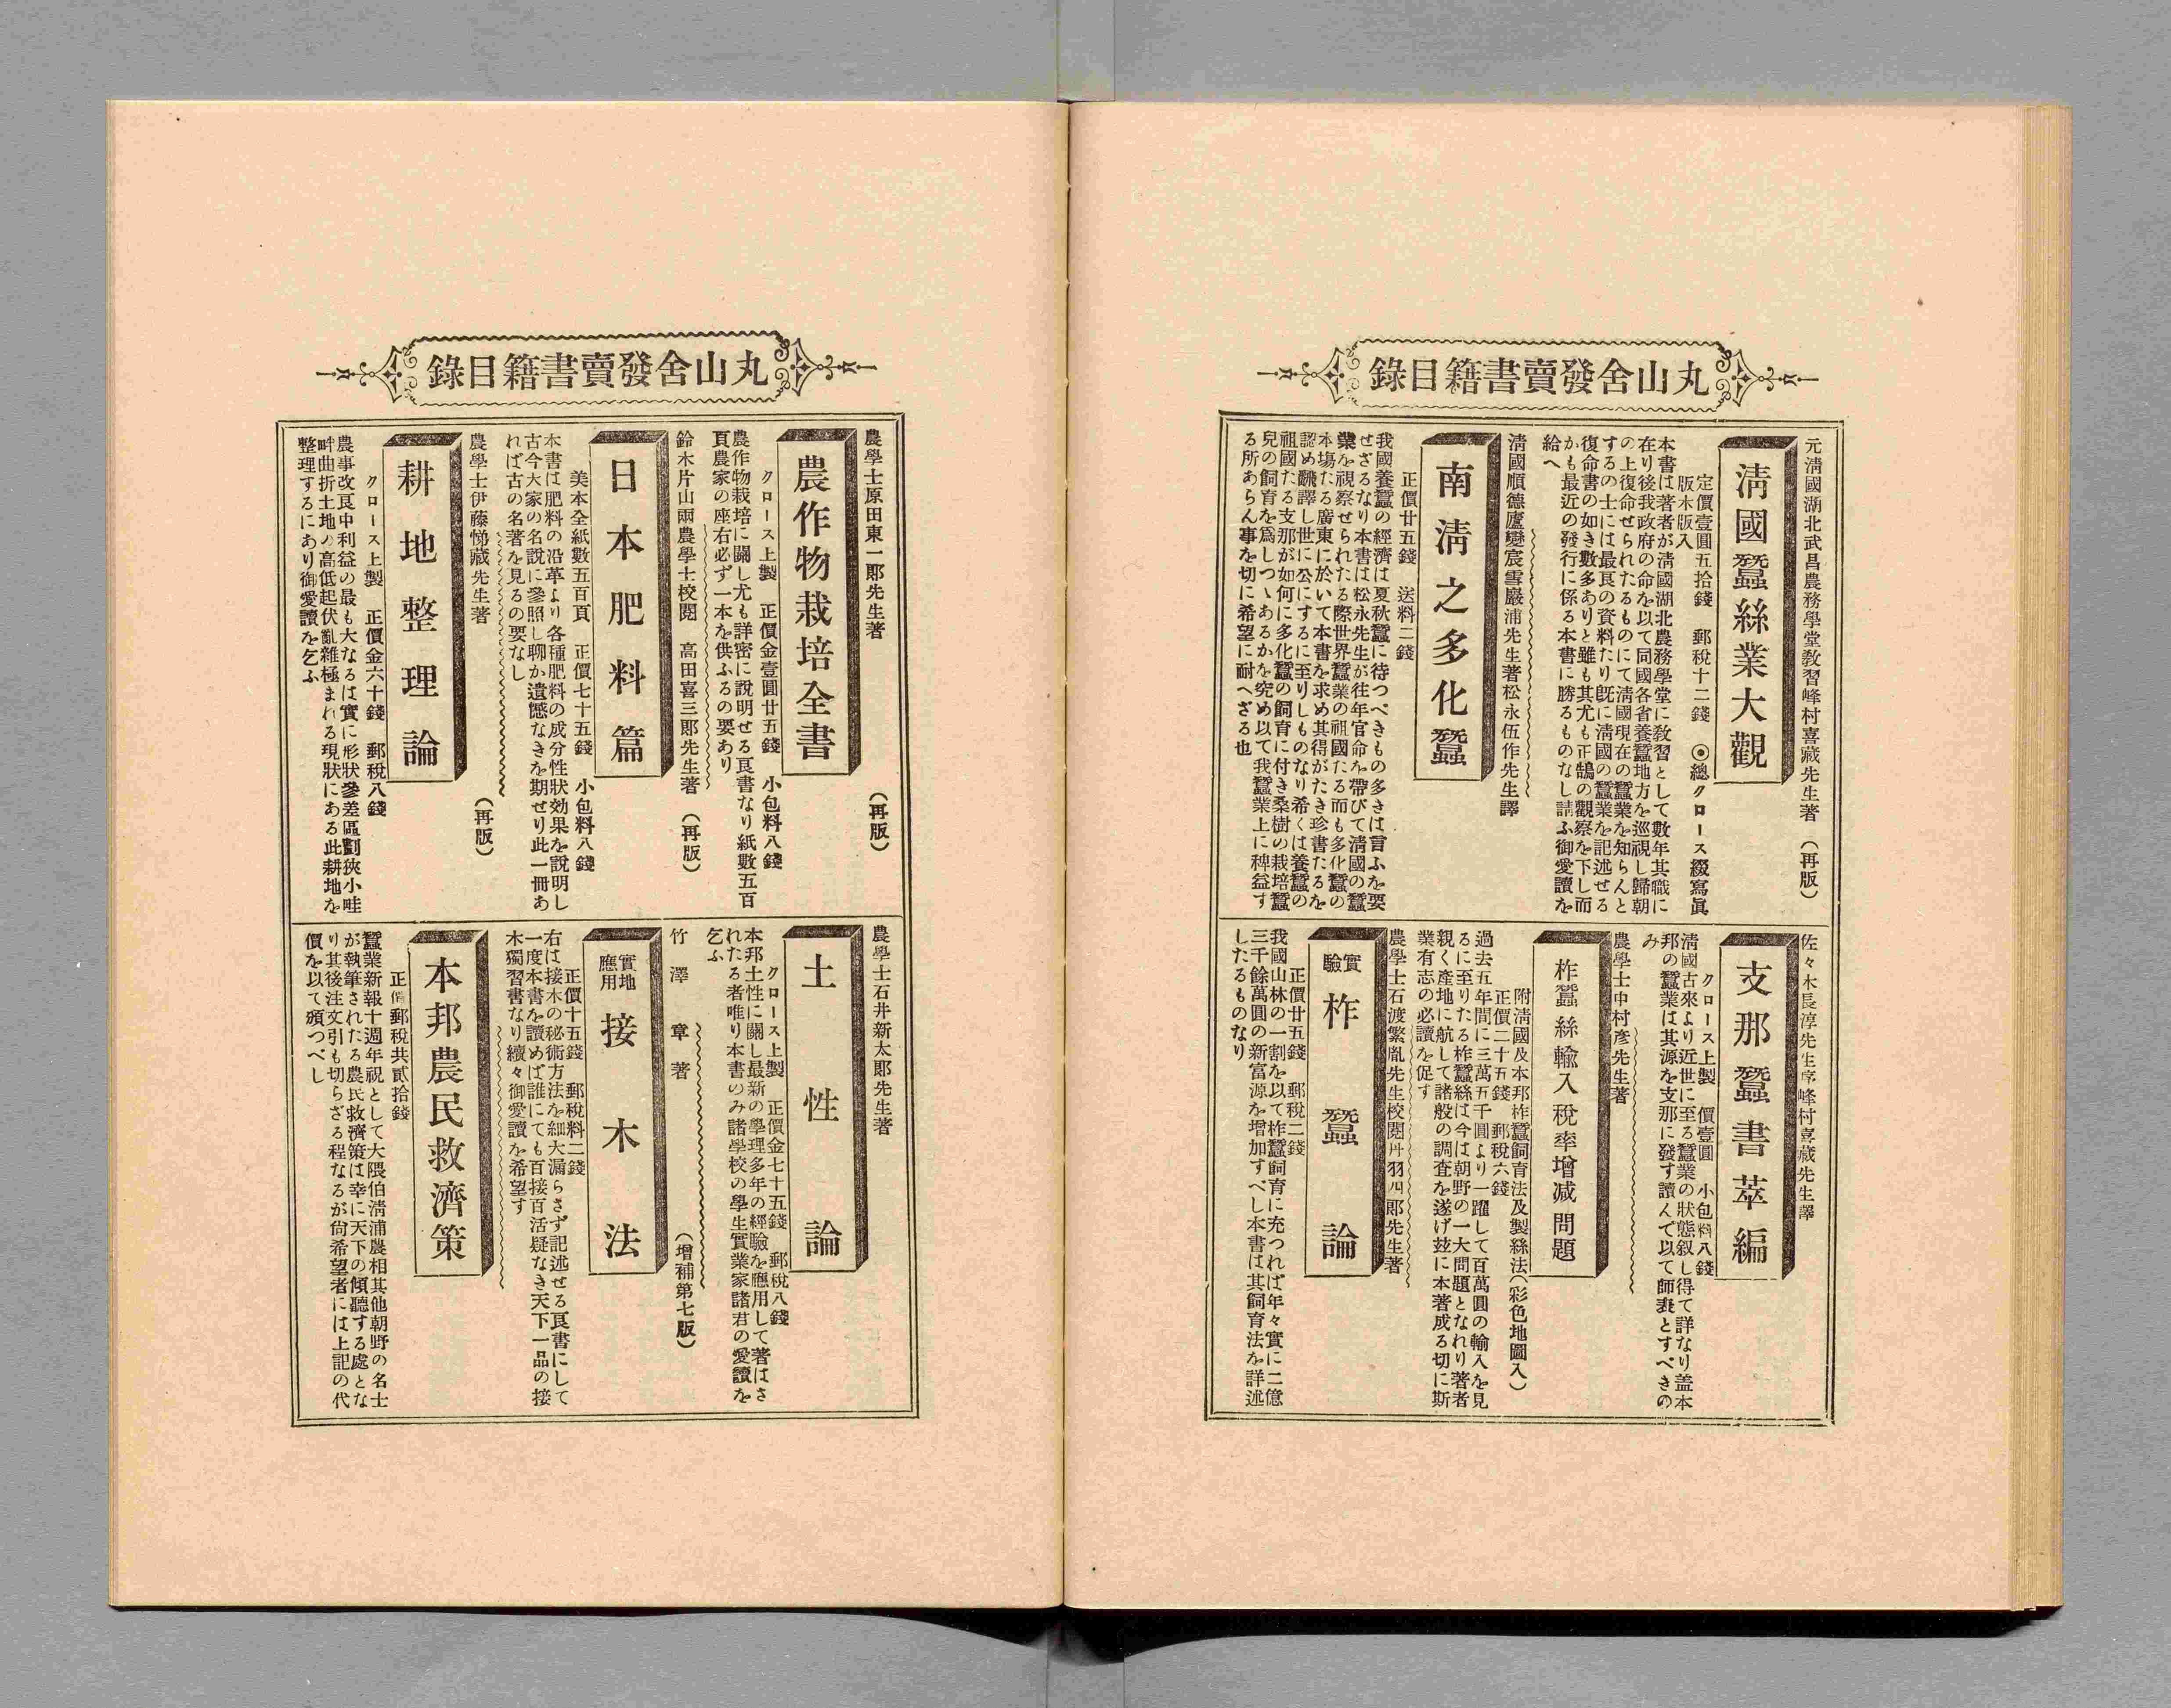 丸山舍發賣書籍目錄
元淸國湖北武昌農務學堂敎習峰村喜藏先生著　（再版）
淸國蠶絲業大觀
定價壹圓五拾錢　郵稅十二錢　◉總クロース綴寫眞
版木版入
本書は著者が淸國湖北農務學堂に敎習として數年其職に
在り後我政府の命を以て同國各省養蠶地方を巡視し歸朝
の上復命せられたるものにて淸國現在の蠶業を知らんと
するの士には最良の資料たり旣に淸國の蠶業を記述せる
復命書の如き數多ありと雖も其尤も正鵠の觀察を下し而
かも最近の發行に係る本書に勝るものなし請ふ御愛讀を
給へ
淸國順德廬燮宸雪巖浦先生著松永伍作先生譯
南淸之多化蠶
正價廿五錢　送料二錢
我國養蠶の經濟は夏秋蠶に待つべきもの多きは言ふを要
せざるなり本書は松永先生が往年官命を帶びて淸國の蠶
業を視察せられたる際世界蠶業の祖國たる而も多化蠶の
本場たる廣東に於いて本書を求め其得がたき珍書たるを
認め飜譯し世に公にするに至りしものなり希くは養蠶の
祖國たる支那が如何に多化蠶の飼育に付き桑樹の栽培蠶
兒の飼育を爲しつゝあるかを究め以て我蠶業上に稗益す
る所あらん事を切に希望に耐へざる也
佐々木長淳先生序峰村喜藏先生譯
支那蠶書萃編
クロース上製　價壹圓　小包料八錢
淸國古來より近世に至る蠶業の狀態叙し得て詳なり盖本
邦の蠶業は其源を支那に發す讀んで以て師表とすべきの
み
農學士中村彥先生著
柞蠶絲輸入稅率增減問題
附淸國及本邦柞蠶飼育法及製絲法（彩色地圖入）
正價二十五錢　郵稅六錢
過去五年間に三萬五千圓より一躍して百萬圓の輸入を見
るに至りたる柞蠶絲は今は朝野の一大問題となれり著者
親く產地に航して諸般の調査を遂げ玆に本著成る切に斯
業有志の必讀を促す
農學士石渡繁胤先生校閱丹羽四郞先生著
實驗柞蠶論
正價廿五錢　郵稅二錢
我國山林の一割を以て柞蠶飼育に充つれば年々實に二億
三千餘萬圓の新富源を增加すべし本書は其飼育法を詳述
したるものなり
丸山舍發賣書籍目錄
農學士原田東一郞先生著　（再版）
農作物栽培全書
クロース上製　正價金壹圓廿五錢　小包料八錢
農作物栽培に關し尤も詳密に說明せる良書なり紙數五百
頁農家の座右必ず一本を供ふるの要あり
鈴木片山兩農學士校閱　高田喜三郞先生著　（再版）
日本肥料篇
美本全紙數五百頁　正價七十五錢　小包料八錢
本書は肥料の沿革より各種肥料の成分性狀効果を說明し
古今大家の名說に參照し聊か遺憾なきを期せり此一冊あ
れば古の名著を見るの要なし
農學士伊藤悌藏先生著　（再版）
耕地整理論
クロース上製　正價金六十錢　郵稅八錢
農事改良中利益の最も大なるは實に形狀參差區劃狹小畦
畔曲折土地の高低起伏亂雜極まれる現狀にある此耕地を
整理するにあり御愛讀を乞ふ
農學士石井新太郞先生著
土性論
クロース上製　正價金七十五錢　郵稅八錢
本邦土性に關し最新の學理多年の經驗を應用して著はさ
れたる者唯り本書のみ諸學校の學生實業家諸君の愛讀を
乞ふ
竹澤章著　（增補第七版）
實地應用接木法
正價十五錢　郵稅料二錢
右は接木の秘術方法を細大漏らさず記述せる良書にして
一度本書を讀めば誰にても百接百活疑なき天下一品の接
木獨習書なり續々御愛讀を希望す
本邦農民救濟策
正價郵稅共貳拾錢
蠶業新報十週年祝として大隈伯淸浦農相其他朝野の名士
が執筆されたる農民救濟策は幸に天下の傾聽する處とな
り其後注文引も切らざる程なるが尙希望者には上記の代
價を以て頒つべし